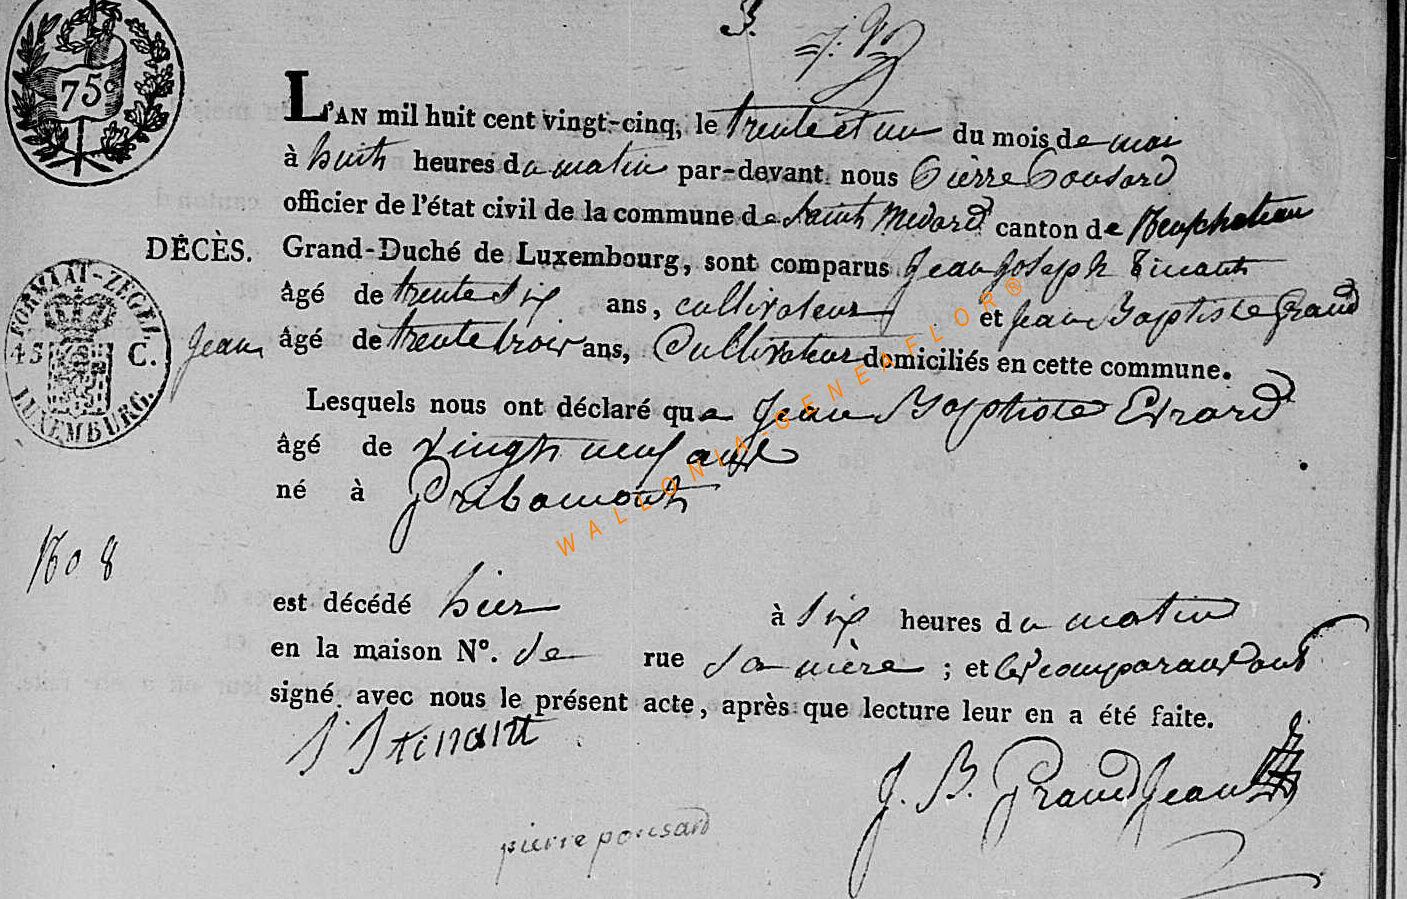 3.
75c
L'AN mil huit cent vingt-cinq, le trente et un du mois de mai
à huit heures du matin par-devant nous Pierre Pousard
officier de l'état civil de la commune de Saint Medard canton de Neufchateau
DÉCÈS.
Grand-Duché de Luxembourg, sont comparus Jean Joseph Tinant
FORMAAT-ZEGEL
45 C.
LUXEMBURG.
âgé de trente six ans, cultivateur et Jean Baptiste Grand
Jean
âgé de trente trois ans, Cultivateur domiciliés en cette commune.
Lesquels nous ont déclaré que Jean Baptiste Evrard
âgé de vingt neuf ans
né à Pribamont
WALLONIA-GENEAFLOR®
No 8
est décédé hier à six heures du matin
en la maison N°. de rue sa mère ; et les comparans ont
signé avec nous le présent acte, après que lecture leur en a été faite.
J J tinant
J. B. GrandJean
pierre pousard